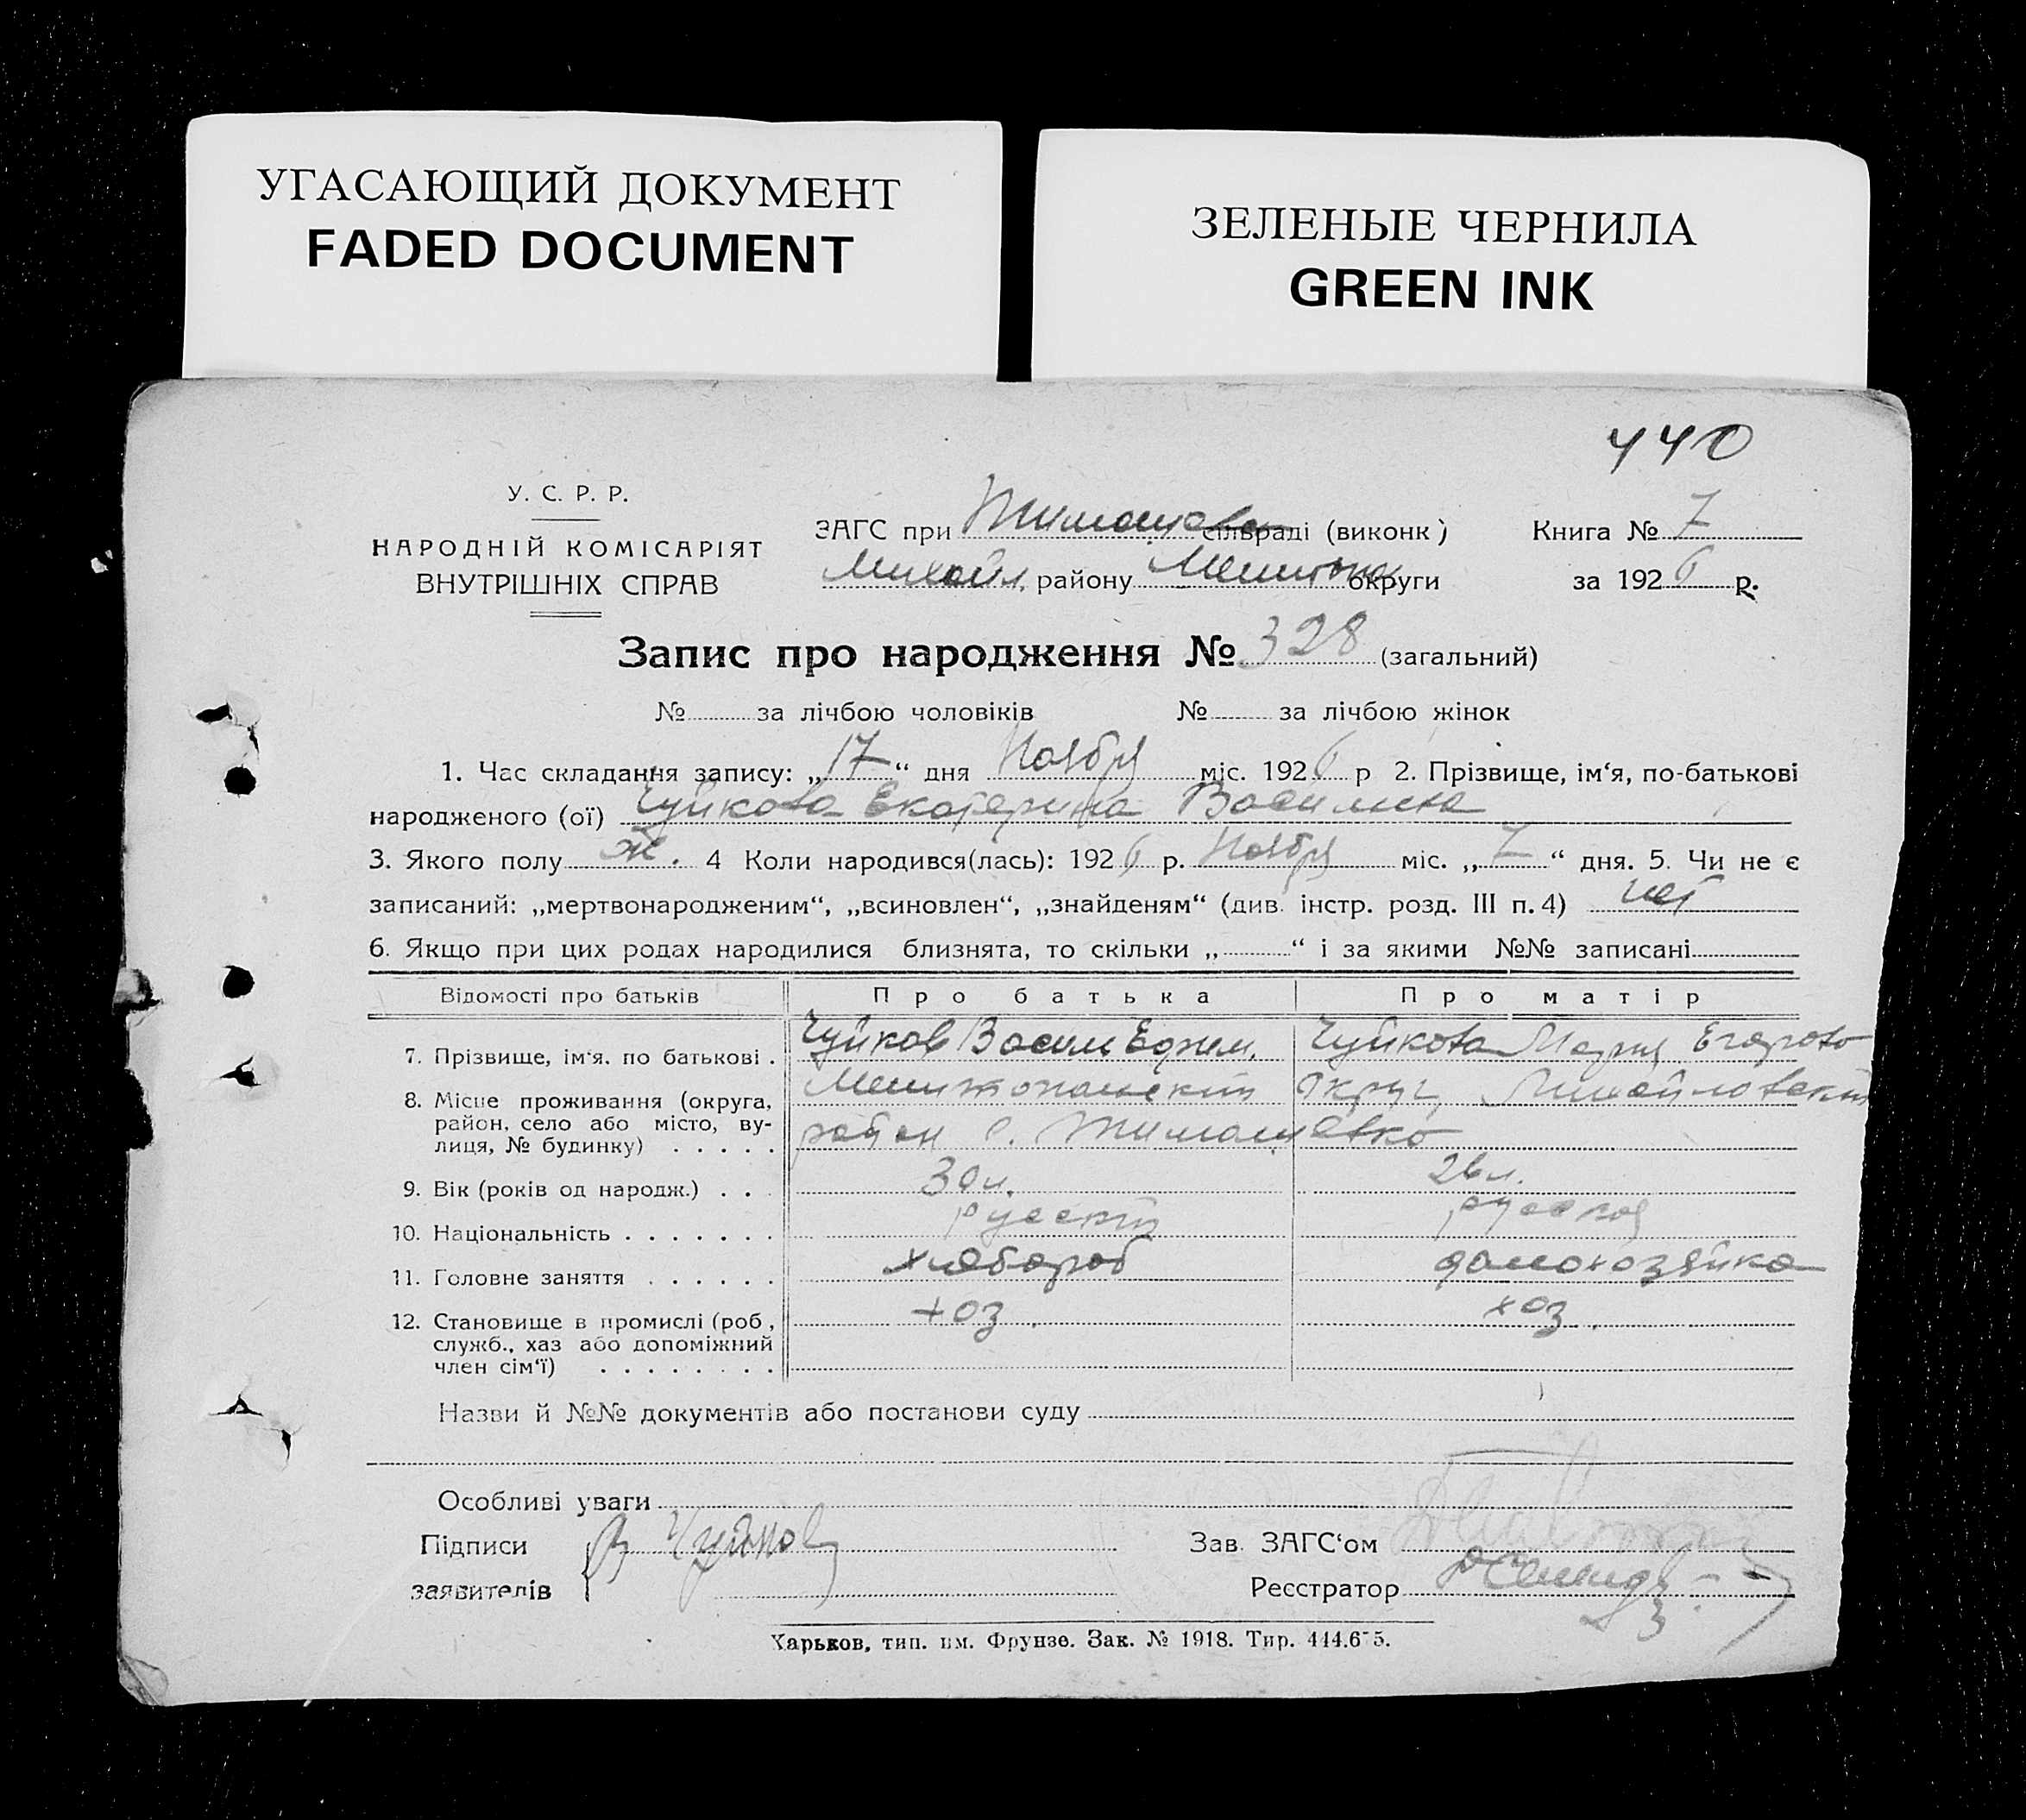 УГАСАЮЩИЙ ДОКУМЕНТ
FADED DOCUMENT
ЗЕЛЕНЫЕ ЧЕРНИЛА
GREEN INK
440
У. С. Р. Р.
НАРОДНІЙ КОМІСАРІЯТ
ВНУТРІШНІХ СПРАВ
ЗАГС при Тимошовск сільраді (виконк) Книга № 7
Михайл. району Мелитоп округи за 1926 р.
Запис про народження № 328 (загальний)
№ за лічбою чоловіків № за лічбою жінок
1. Час складання запису: „17“ дня Ноября міс. 1926 р 2. Прізвище, ім‘я, по-батькові
народженого (ої) Чуйкова Екатерина Василина
3. Якого полу ж. 4 Коли народився(лась): 1926 р. Ноября міс. „7“ дня. 5. Чи не є
записаний: „мертвонародженим“, „всиновлен“, „знайденям“ (див. інстр. розд. III п. 4) нет
6. Якщо при цих родах народилися близнята, то скільки „ “ і за якими №№ записані
Відомості про батьків Про батька Про матір
7. Прізвище, ім‘я. по батькові . Чуйков Васили Ефим. Чуйкова Мария Егорова
8. Місце проживання (округа, район, село або місто, вулиця, № будинку) . . . . . Мелитопольский округ, Михайловский
район с. Тимошевка
9. Вік (років од народж.) . . . 30 л. 26 л.
10. Національність . . . . . . . русский русская
11. Головне заняття . . . . . . хлебороб домохозяйка
12. Становище в промислі (роб, служб., хаз або допоміжний член сім‘ї) . . . . . . . . хоз. хоз.
Назви й №№ документів або постанови суду
Особливі уваги
Підписи заявителів В Чуйков
Зав. ЗАГС‘ом
Реєстратор
Харьков, тип. им. Фрунзе. Зак. № 1918. Тир. 444.675.